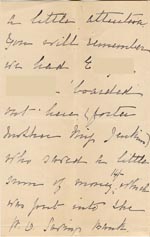 a little attention
You will remember
we had E
boarded
out here (foster
Mother Mrs Jenkins)
who saved a little
sum of money, which
was put into the
P.O. Savings Bank